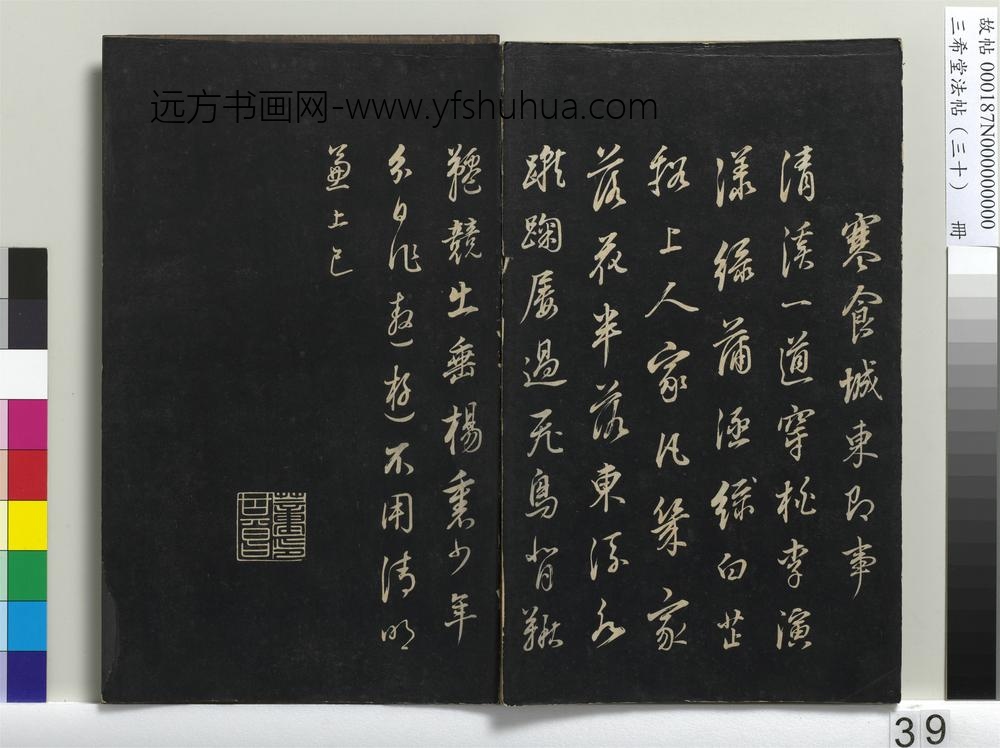 远方书画网-www.yfshuhua.com
寒食城東即事
清溪一道穿桃李演
漾綠蒲涵綠白芷
谿上人家凡幾家
落花半落東流水
蹴踘屢過飛鳥背鞦
韆競出垂楊裏少年
分日作遨遊不用清明
兼上巳
董其昌印
故帖 000187N000000000
三希堂法帖(三十) 冊
39